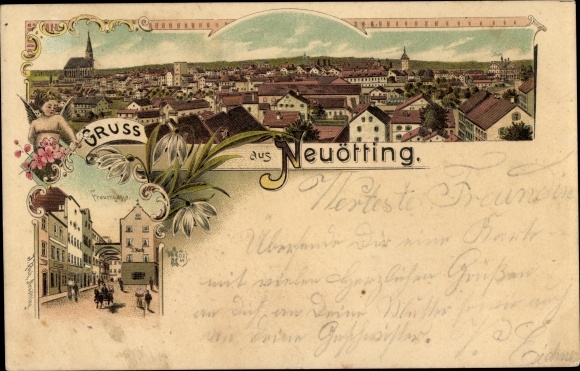 GRUSS
aus Neuötting.
Werteste Freundin
Übersende Dir eine Karte
mit vielen herzlichen Grüßen
an Dich, an Deine Mutter sowie auch
an Deine Geschwister.